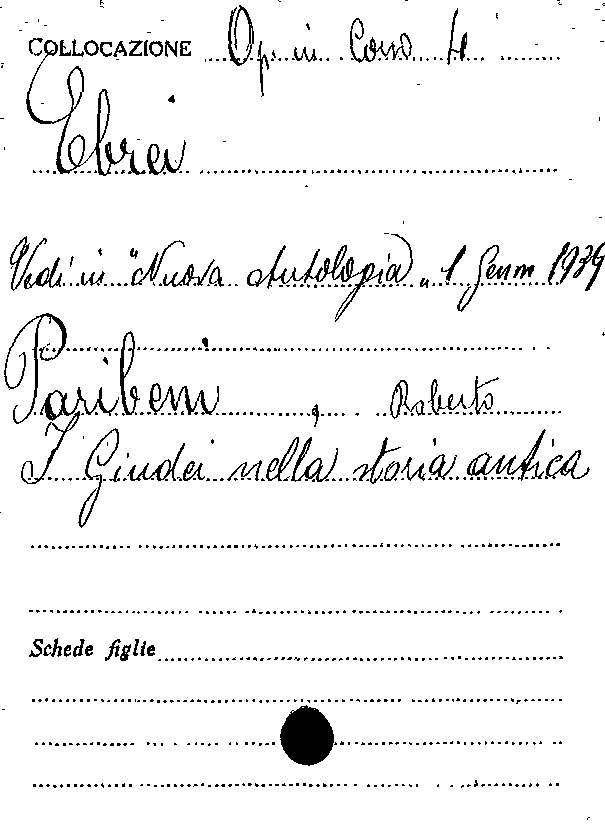 COLLOCAZIONE Op. in Corso
Ebrei
Vedi in "Nuova Antologia" 1 Genn 1939
Paribeni, Roberto
I Giudei nella storia antica
Schede figlie